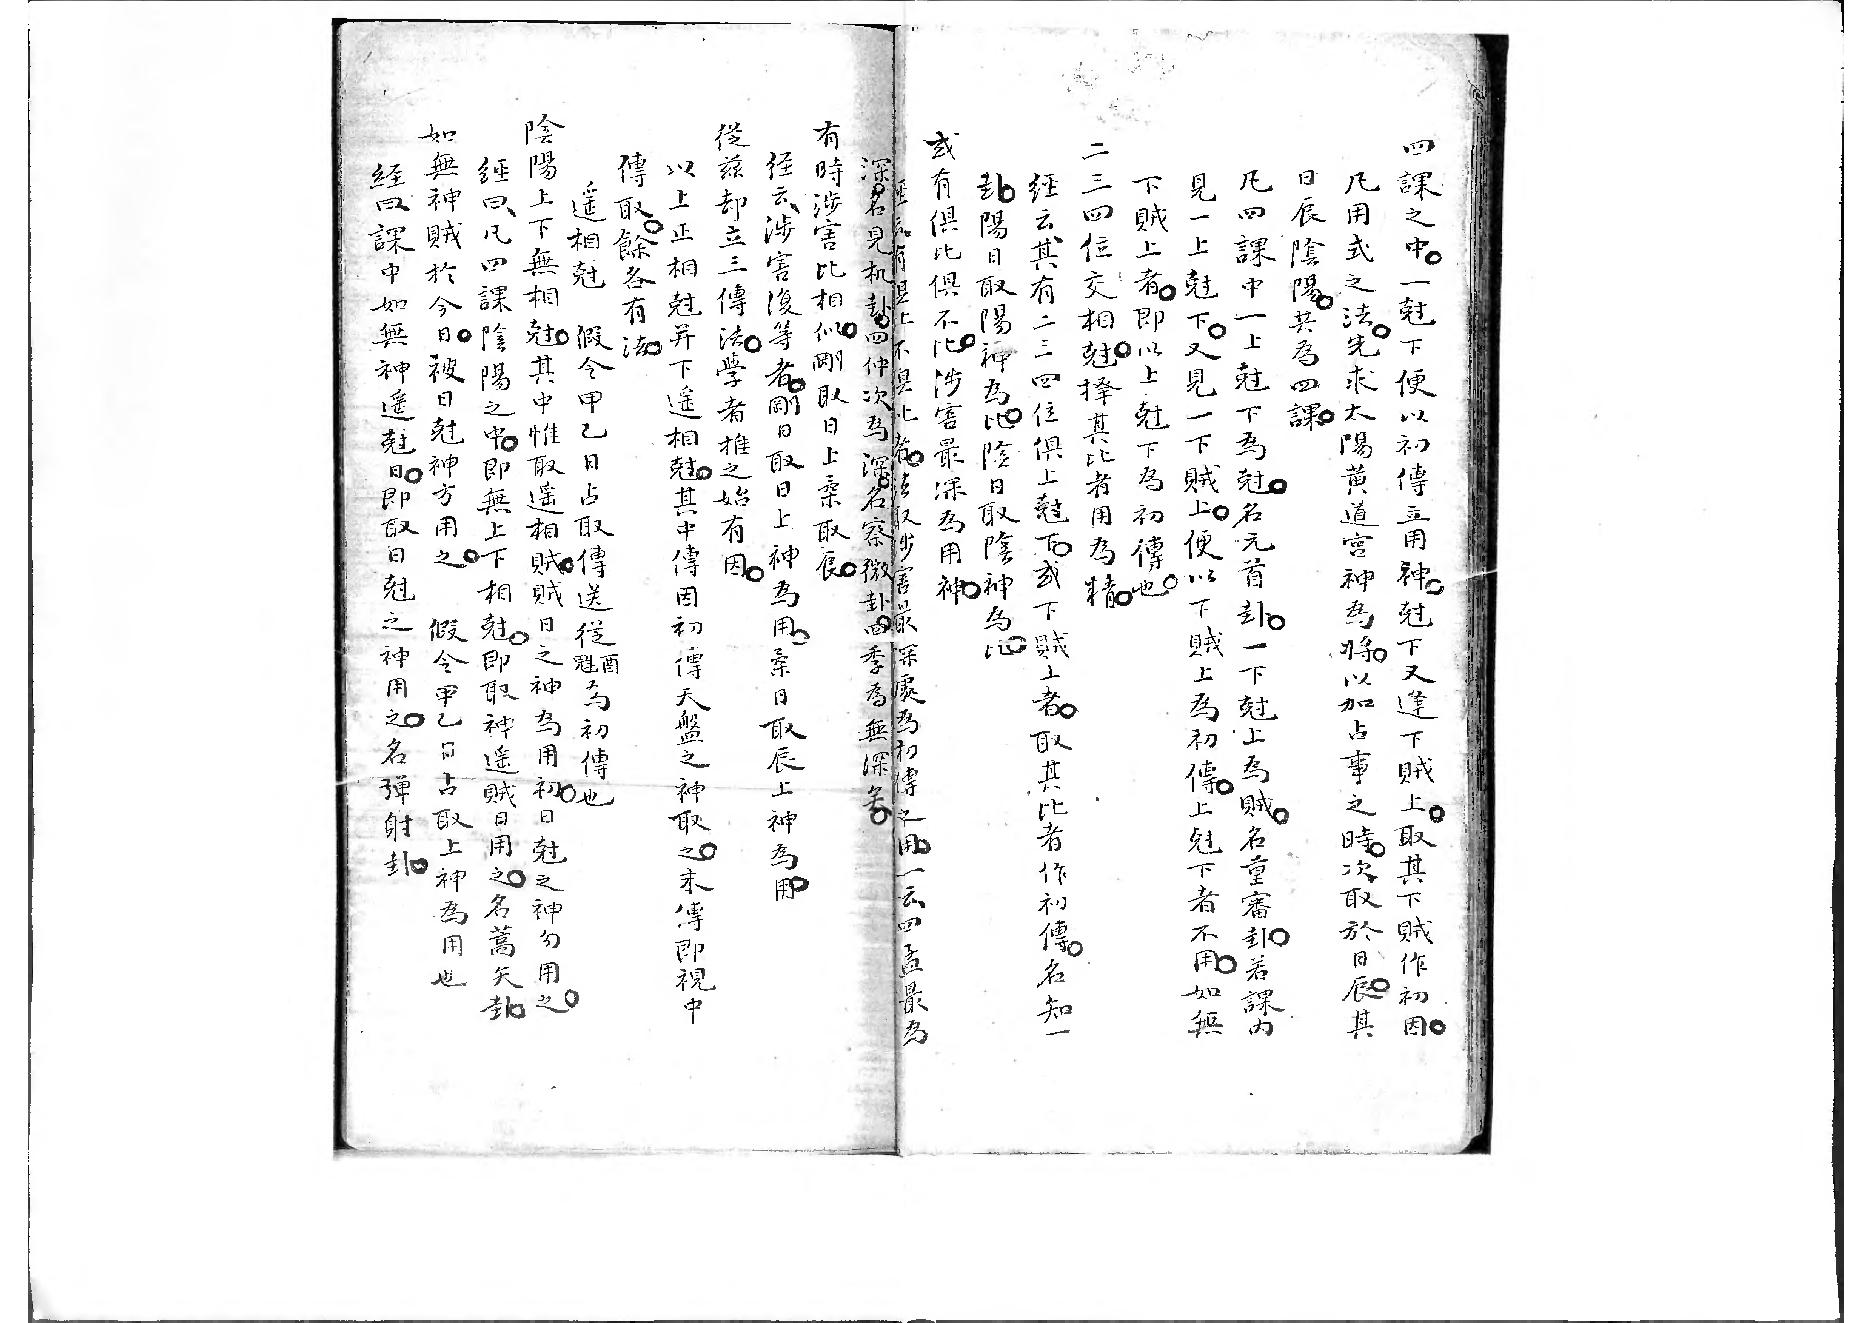 四課之中。一尅下便以初傳立用神。尅下又逢下賊上。取其下賊作初因。
凡用式之法。先求太陽黄道宫神為將。以加占事之時。次取於日辰。其
日辰陰陽。共為四課。
凡四課中一上尅下為尅。名元首卦。一下尅上為賊。名重審卦。若課内
見一上尅下。又見一下賊上。便以下賊上為初傳。上尅下者不用。如無
下賊上者。即以上尅下為初傳也。
二三四位交相尅。擇其比者用為精。
經云其有二三四位俱上尅下。或下賊上者。取其比者作初傳。名知一
卦。陽日取陽神為比。陰日取陰神為比。
或有俱比俱不比。涉害最深為用神。
經云有俱上不俱比者。法取涉害最深處為初傳之用。一云四孟最為
深。名見机卦。四仲次為深。名察微卦。四季為無深矣。
有時涉害比相似。剛取日上柔取辰。
経云、涉害復等者。剛日取日上神為用。柔日取辰上神為用。
從兹却立三傳法。學者推之始有因。
以上正相尅并下遥相尅。其中傳因初傳天盤之神取之。末傳即視中
傳取。餘各有法。
遥相尅 假令甲乙日占取傳送從魁酉為初傳也
陰陽上下無相尅。其中惟取遥相賊。賊日之神為用初。日尅之神勿用之。
經曰、凡四課陰陽之中。即無上下相尅。即取神遥賊日用之。名蒿矢卦。
如無神賊於今日。被日尅神方用之。 假令甲乙日占取上神為用也
経曰課中如無神遥尅日。即取日尅之神用之。名彈射卦。